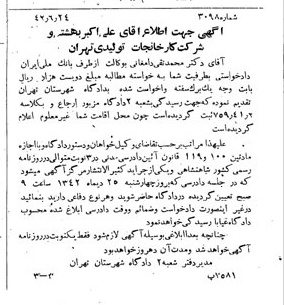 شماره ۳۰۹۸ ۴۲ر۶ر۲۴
آگهی جهت اطلاع آقای علی اکبر بهشتی و
شرکت کارخانجات تولیدی تهران
آقای دکتر محمدتقی دامغانی بوکالت از طرف بانک ملی ایران
دادخواستی بطرفیت شما به خواسته مطالبه مبلغ دویست هزار ریال
بابت وجه یک برگ سفته واخواست شده بدادگاه شهرستان تهران
تقدیم نموده که جهت رسیدگی بشعبه ۲ دادگاه مزبور ارجاع و بکلاسه
۲ر۴۱ر۷۵۹ ثبت گردیده است چون محل اقامت شما غیر معلوم اعلام
گردیده است
علیهذا مراتب بر حسب تقاضای وکیل خواهان و دستور دادگاه و با اجازه
مادتین ۱۰۰ و ۱۱۹ قانون آئین دادرسی مدنی در ۳ نوبت متوالی در روزنامه
رسمی کشور شاهنشاهی و یکی از جراید کثیر الانتشار مرکز آگهی میشود
که در جلسه دادرسی که روز چهارشنبه ۲۵ دیماه ۱۳۴۲ ساعت ۹
صبح تعیین گردیده در دادگاه حاضر شوید و هر نوع دفاعی دارید بنمائید
در غیر اینصورت دادخواست وضمائم ووقت دادرسی ابلاغ شده محسوب
دادگاه غیابا رسیدگی خواهد نمود
چنانچه بعدا ابلاغی بوسیله آگهی لازم شود فقط یکنوبت در روزنامه
آگهی خواهد شد ومدت آن ده روز خواهد بود
مدیر دفتر شعبه ۲ دادگاه شهرستان تهران
۷۵۸۱پ ۳-۳